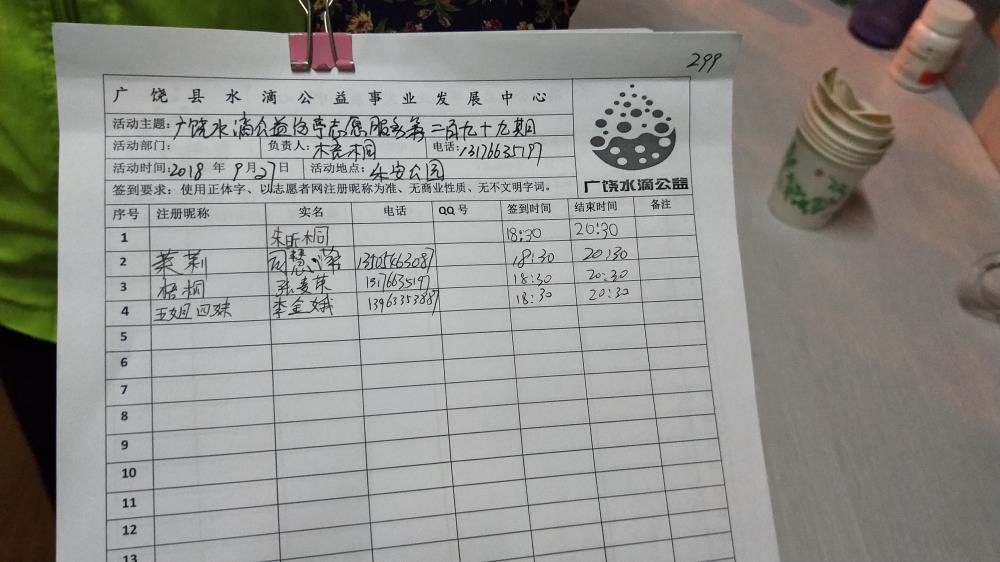 299
广饶县水滴公益事业发展中心
活动主题:广饶水滴公益岗亭志愿服务第二百九十九期
活动部门: 负责人:梧桐 电话:13176635197
活动时间:2018年9月27日 活动地点:乐安公园
签到要求:使用正体字、以志愿者网注册昵称为准、无商业性质、无不文明字词。
广饶水滴公益
序号 注册昵称 实名 电话 QQ号 签到时间 结束时间 备注
1 朱昕桐 18:30 20:30
2 茉莉 13505463087 18:30 20:30
3 梧桐 张麦荣 13176635197 18:30 20:30
4 五姐四妹 李金娥 13963353887 18:30 20:30
5
6
7
8
9
10
11
12
13